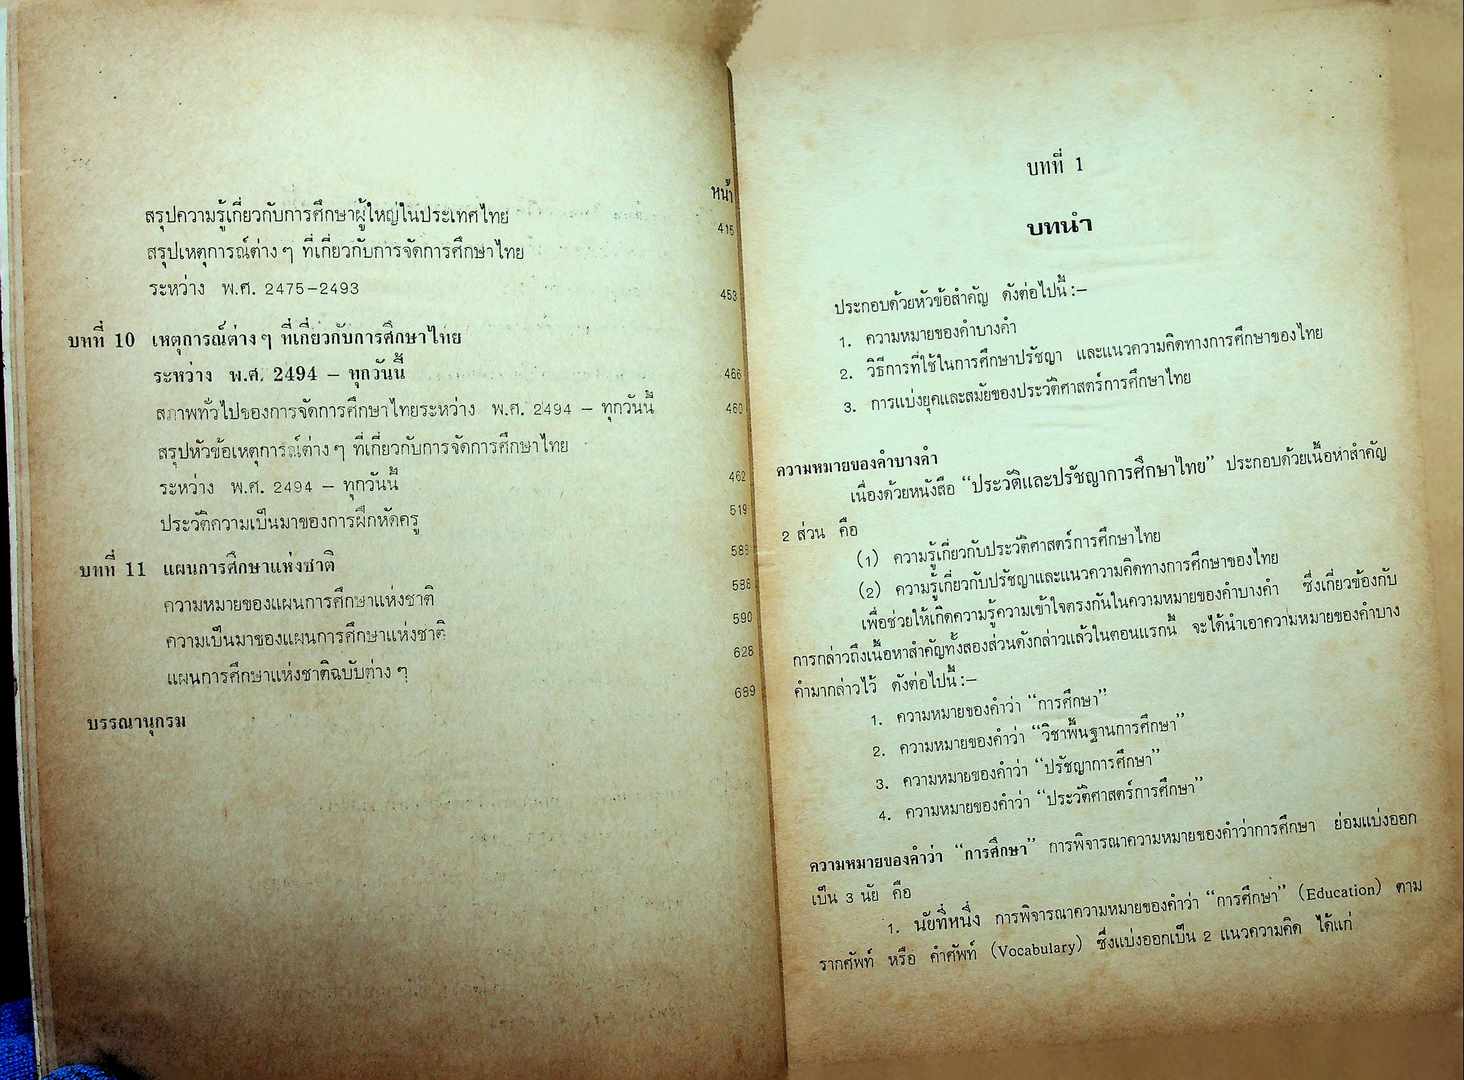 หน้า
สรุปความรู้เกี่ยวกับการศึกษาผู้ใหญ่ในประเทศไทย 415
สรุปเหตุการณ์ต่าง ๆ ที่เกี่ยวกับการจัดการศึกษาไทย
ระหว่าง พ.ศ. 2475–2493 453
บทที่ 10 เหตุการณ์ต่าง ๆ ที่เกี่ยวกับการศึกษาไทย
ระหว่าง พ.ศ. 2494 – ทุกวันนี้ 466
สภาพทั่วไปของการจัดการศึกษาไทยระหว่าง พ.ศ. 2494 – ทุกวันนี้ 460
สรุปหัวข้อเหตุการณ์ต่าง ๆ ที่เกี่ยวกับการจัดการศึกษาไทย
ระหว่าง พ.ศ. 2494 – ทุกวันนี้ 462
ประวัติความเป็นมาของการฝึกหัดครู 519
บทที่ 11 แผนการศึกษาแห่งชาติ 588
ความหมายของแผนการศึกษาแห่งชาติ 588
ความเป็นมาของแผนการศึกษาแห่งชาติ 590
แผนการศึกษาแห่งชาติฉบับต่าง ๆ 628
บรรณานุกรม 689
บทที่ 1
บทนำ
ประกอบด้วยหัวข้อสำคัญ ดังต่อไปนี้ :–
1. ความหมายของคำบางคำ
2. วิธีการที่ใช้ในการศึกษาปรัชญา และแนวความคิดทางการศึกษาของไทย
3. การแบ่งยุคและสมัยของประวัติศาสตร์การศึกษาไทย
ความหมายของคำบางคำ
เนื่องด้วยหนังสือ “ประวัติและปรัชญาการศึกษาไทย” ประกอบด้วยเนื้อหาสำคัญ
2 ส่วน คือ
(1) ความรู้เกี่ยวกับประวัติศาสตร์การศึกษาไทย
(2) ความรู้เกี่ยวกับปรัชญาและแนวความคิดทางการศึกษาของไทย
เพื่อช่วยให้เกิดความรู้ความเข้าใจตรงกันในความหมายของคำบางคำ ซึ่งเกี่ยวข้องกับ
การกล่าวถึงเนื้อหาสำคัญทั้งสองส่วนดังกล่าวแล้วในตอนแรกนี้ จะได้นำเอาความหมายของคำบาง
คำมากล่าวไว้ ดังต่อไปนี้ :–
1. ความหมายของคำว่า “การศึกษา”
2. ความหมายของคำว่า “วิชาพื้นฐานการศึกษา”
3. ความหมายของคำว่า “ปรัชญาการศึกษา”
4. ความหมายของคำว่า “ประวัติศาสตร์การศึกษา”
ความหมายของคำว่า “การศึกษา” การพิจารณาความหมายของคำว่าการศึกษา ย่อมแบ่งออก
เป็น 3 นัย คือ
1. นัยที่หนึ่ง การพิจารณาความหมายของคำว่า “การศึกษา” (Education) ตาม
รากศัพท์ หรือ คำศัพท์ (Vocabulary) ซึ่งแบ่งออกเป็น 2 แนวความคิด ได้แก่